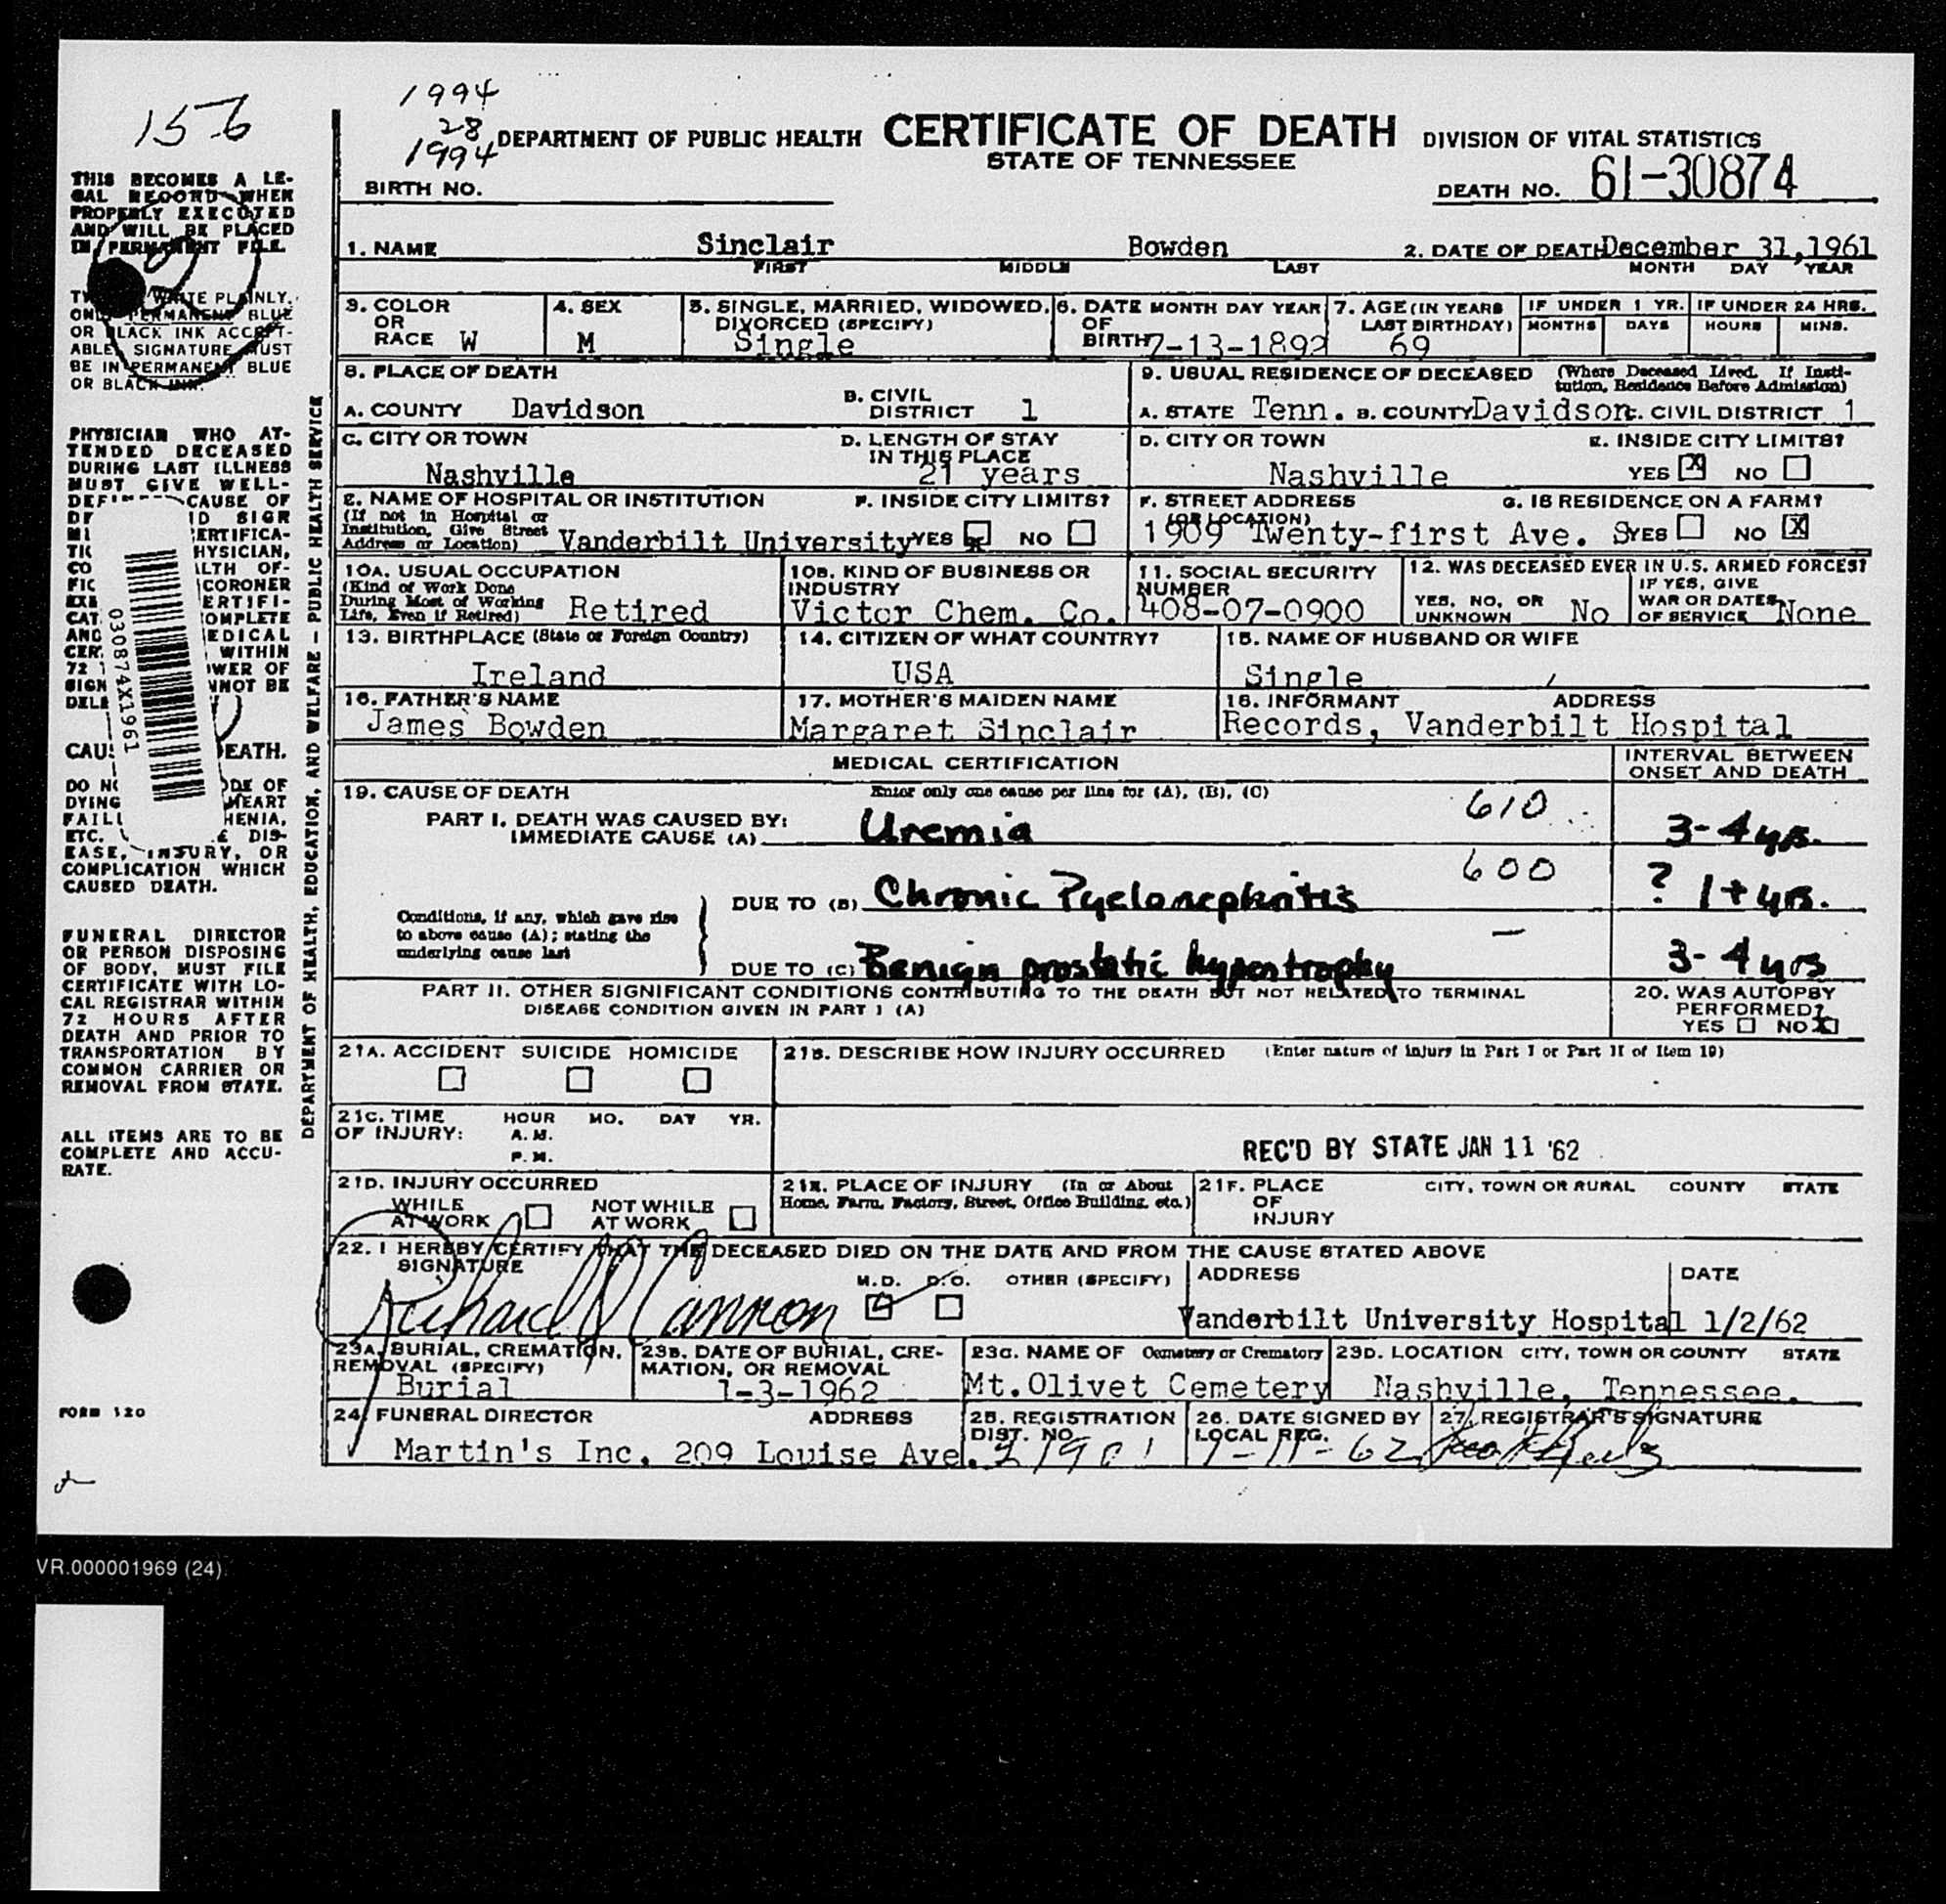 156
1994
28
1994
DEPARTMENT OF PUBLIC HEALTH CERTIFICATE OF DEATH DIVISION OF VITAL STATISTICS
STATE OF TENNESSEE
BIRTH NO.
DEATH NO. 61-30874
THIS BECOMES A LE-
GAL RECORD WHEN
PROPERLY EXECUTED
AND WILL BE PLACED
IN PERMANENT FILE.
WRITE PLAINLY.
PERMANENT BLUE
OR BLACK INK ACCEPT-
ABLE. SIGNATURE MUST
BE IN PERMANENT BLUE
OR BLACK INK.
PHYSICIAN WHO AT-
TENDED DECEASED
DURING LAST ILLNESS
MUST GIVE WELL-
CAUSE OF
SIGN
ERTIFICA-
HYSICIAN,
LTH OF-
CORONER
ERTIFI-
OMPLETE
AND EDICAL
CER. WITHIN
72 WER OF
SIGN NNOT BE
DELE
030874X1961
CAUS DEATH.
DO NO ODE OF
DYING HEART
FAILU HENIA,
ETC. DIS-
EASE, INJURY, OR
COMPLICATION WHICH
CAUSED DEATH.
FUNERAL DIRECTOR
OR PERSON DISPOSING
OF BODY, MUST FILE
CERTIFICATE WITH LO-
CAL REGISTRAR WITHIN
72 HOURS AFTER
DEATH AND PRIOR TO
TRANSPORTATION BY
COMMON CARRIER OR
REMOVAL FROM STATE.
ALL ITEMS ARE TO BE
COMPLETE AND ACCU-
RATE.
FORM 120
DEPARTMENT OF HEALTH, EDUCATION, AND WELFARE - PUBLIC HEALTH SERVICE
1. NAME Sinclair Bowden 2. DATE OF DEATH December 31, 1961
FIRST MIDDLE LAST MONTH DAY YEAR
3. COLOR OR RACE W
4. SEX M
5. SINGLE, MARRIED, WIDOWED, DIVORCED (SPECIFY) Single
6. DATE OF BIRTH MONTH DAY YEAR 7-13-1892
7. AGE (IN YEARS LAST BIRTHDAY) 69
IF UNDER 1 YR. MONTHS DAYS
IF UNDER 24 HRS. HOURS MINS.
8. PLACE OF DEATH
A. COUNTY Davidson B. CIVIL DISTRICT 1
9. USUAL RESIDENCE OF DECEASED (Where Deceased Lived. If Insti-
tution, Residence Before Admission)
A. STATE Tenn. B. COUNTY Davidson C. CIVIL DISTRICT 1
C. CITY OR TOWN Nashville
D. LENGTH OF STAY IN THIS PLACE 21 years
D. CITY OR TOWN Nashville
E. INSIDE CITY LIMITS? YES X NO
E. NAME OF HOSPITAL OR INSTITUTION
(If not in Hospital or
Institution, Give Street
Address or Location) Vanderbilt University
F. INSIDE CITY LIMITS? YES X NO
F. STREET ADDRESS (OR LOCATION) 1909 Twenty-first Ave. S
G. IS RESIDENCE ON A FARM? YES NO X
10A. USUAL OCCUPATION
(Kind of Work Done
During Most of Working
Life, Even if Retired) Retired
10B. KIND OF BUSINESS OR INDUSTRY Victor Chem. Co.
11. SOCIAL SECURITY NUMBER 408-07-0900
12. WAS DECEASED EVER IN U.S. ARMED FORCES?
YES, NO, OR UNKNOWN No
IF YES, GIVE WAR OR DATES OF SERVICE None
13. BIRTHPLACE (State or Foreign Country) Ireland
14. CITIZEN OF WHAT COUNTRY? USA
15. NAME OF HUSBAND OR WIFE Single
16. FATHER'S NAME James Bowden
17. MOTHER'S MAIDEN NAME Margaret Sinclair
18. INFORMANT ADDRESS Records, Vanderbilt Hospital
MEDICAL CERTIFICATION
INTERVAL BETWEEN
ONSET AND DEATH
19. CAUSE OF DEATH Enter only one cause per line for (A), (B), (C)
PART I. DEATH WAS CAUSED BY:
IMMEDIATE CAUSE (A) Uremia 610 3-4 yrs.
DUE TO (B) Chronic Pyelonephritis 600 ? 1+ yrs.
Conditions, if any, which gave rise
to above cause (A); stating the
underlying cause last
DUE TO (C) Benign prostatic hypertrophy — 3-4 yrs
PART II. OTHER SIGNIFICANT CONDITIONS CONTRIBUTING TO THE DEATH BUT NOT RELATED TO TERMINAL
DISEASE CONDITION GIVEN IN PART I (A)
20. WAS AUTOPSY
PERFORMED?
YES NO X
21A. ACCIDENT SUICIDE HOMICIDE
21B. DESCRIBE HOW INJURY OCCURRED (Enter nature of injury in Part I or Part II of Item 19)
21C. TIME OF INJURY: HOUR MO. DAY YR.
A. M.
P. M.
REC'D BY STATE JAN 11 '62
21D. INJURY OCCURRED
WHILE AT WORK NOT WHILE AT WORK
21E. PLACE OF INJURY (In or About
Home, Farm, Factory, Street, Office Building, etc.)
21F. PLACE OF INJURY CITY, TOWN OR RURAL COUNTY STATE
22. I HEREBY CERTIFY THAT THE DECEASED DIED ON THE DATE AND FROM THE CAUSE STATED ABOVE
SIGNATURE M.D. D.O. OTHER (SPECIFY) ADDRESS DATE
Richard Cannon Vanderbilt University Hospital 1/2/62
23A. BURIAL, CREMATION, REMOVAL (SPECIFY) Burial
23B. DATE OF BURIAL, CRE-
MATION, OR REMOVAL 1-3-1962
23C. NAME OF Cemetery or Crematory Mt.Olivet Cemetery
23D. LOCATION CITY, TOWN OR COUNTY STATE Nashville, Tennessee.
24. FUNERAL DIRECTOR ADDRESS Martin's Inc. 209 Louise Ave.
25. REGISTRATION DIST. NO.
26. DATE SIGNED BY LOCAL REG. 1-11-62
27. REGISTRAR'S SIGNATURE
VR.000001969 (24)